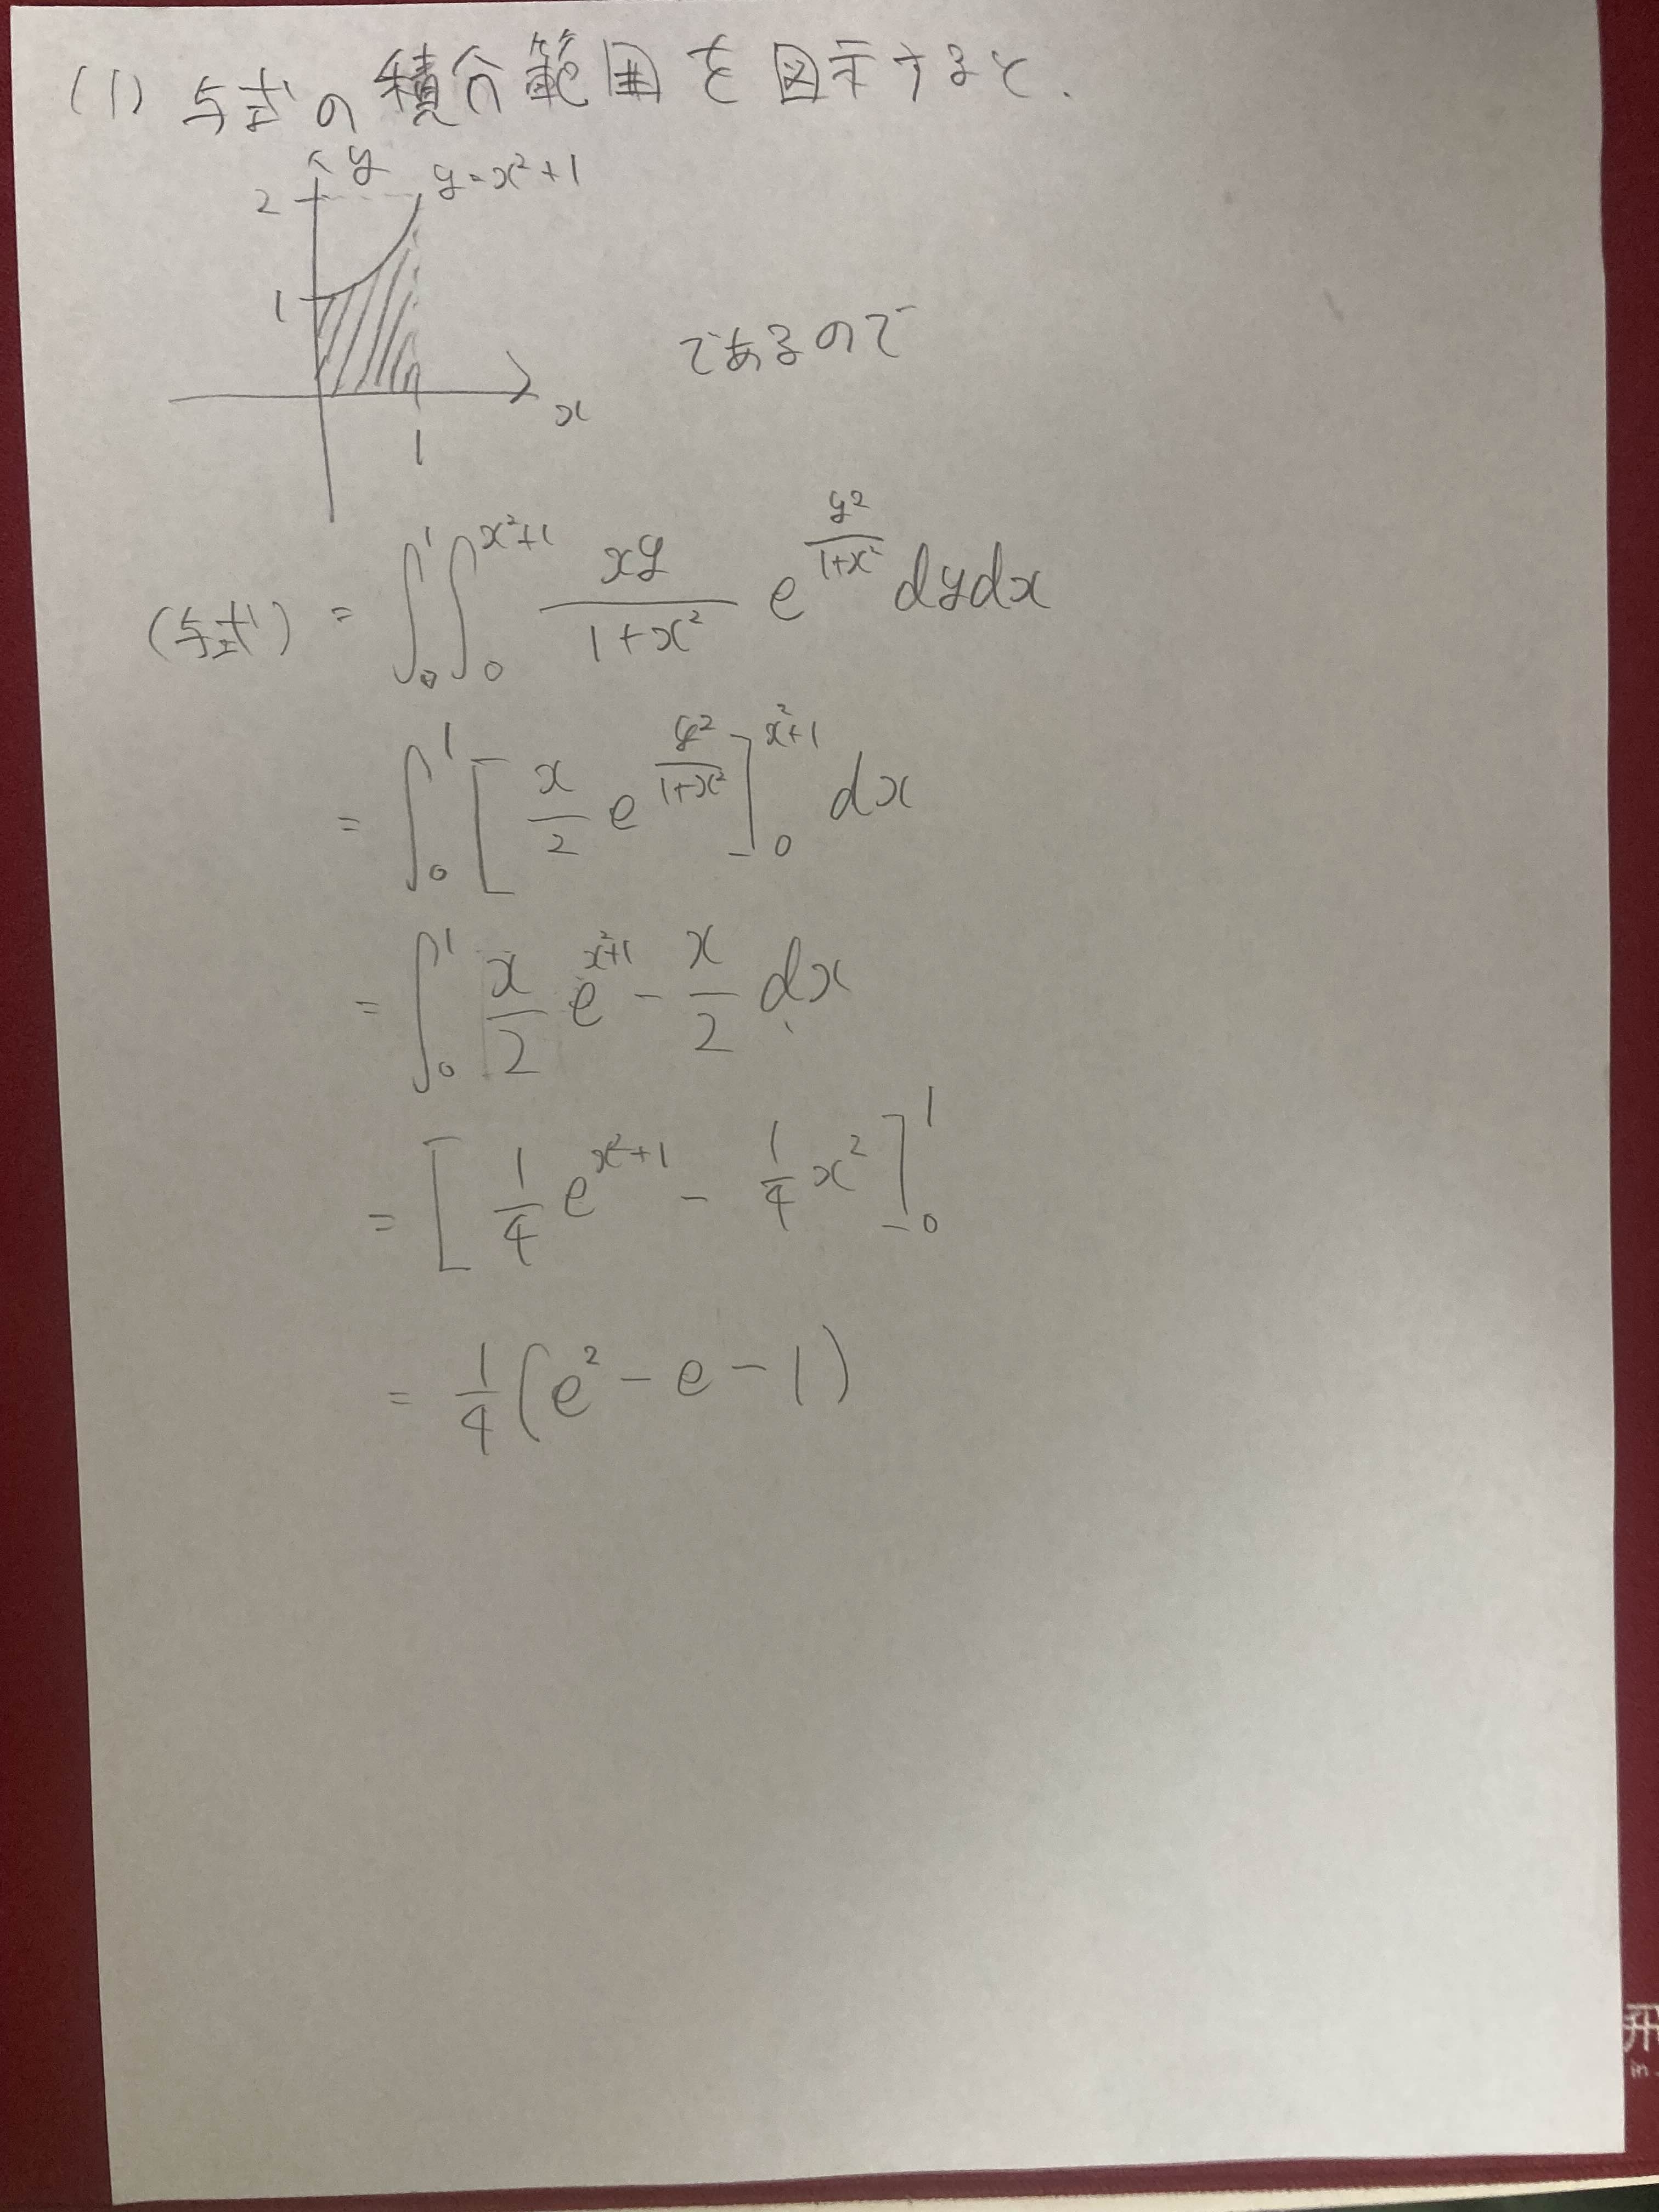 (1) 与式の積分範囲を図示すると.
y
y=x²+1
2
1
であるので
x
1
(与式) = ∫₀¹∫₀^{x²+1} \frac{xy}{1+x²} e^{\frac{y²}{1+x²}} dydx
= ∫₀¹ [ \frac{x}{2} e^{\frac{y²}{1+x²}} ]₀^{x²+1} dx
= ∫₀¹ \frac{x}{2} e^{x²+1} - \frac{x}{2} dx
= [ \frac{1}{4} e^{x²+1} - \frac{1}{4} x² ]₀¹
= \frac{1}{4} (e² - e - 1)